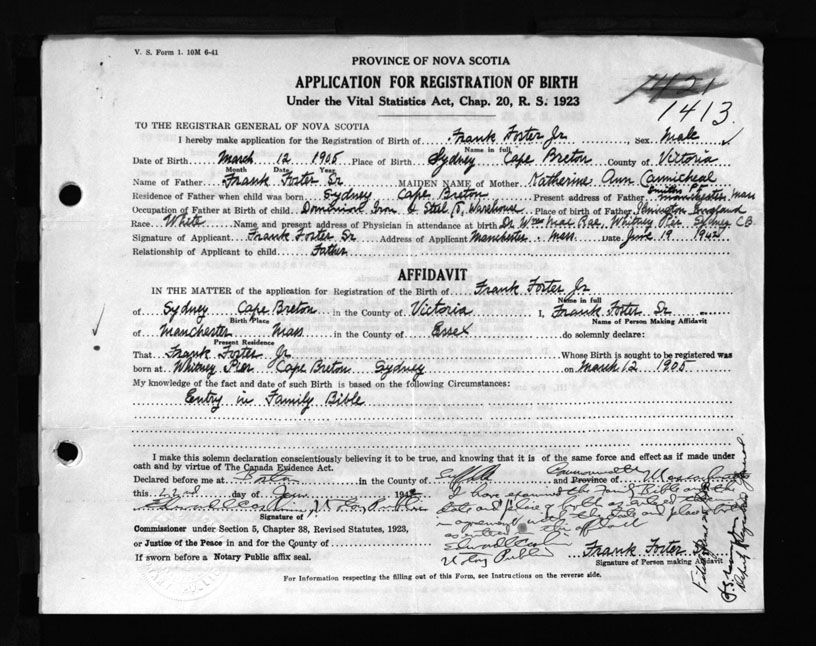 V. S. Form 1. 10M 6-41
PROVINCE OF NOVA SCOTIA
APPLICATION FOR REGISTRATION OF BIRTH
Under the Vital Statistics Act, Chap. 20, R. S. 1923
1421
1413.
TO THE REGISTRAR GENERAL OF NOVA SCOTIA
I hereby make application for the Registration of Birth of Frank Foster Jr, Sex Male
Name in full
Date of Birth March 12 1905 Place of Birth Sydney Cape Breton County of Victoria
Month Date Year
Name of Father Frank Foster Sr MAIDEN NAME of Mother Katherine Ann Carmicheal
Smiths Pt
Residence of Father when child was born Sydney Cape Breton Present address of Father Manchester Mass
Occupation of Father at Birth of child Dominion Iron & Steel Warehouse Place of birth of Father England
Race White Name and present address of Physician in attendance at birth Dr Wm Mac Rae, Whitney Pier Sydney C B
Signature of Applicant Frank Foster Sr Address of Applicant Manchester Mass Date June 19 1942
Relationship of Applicant to child Father
AFFIDAVIT
IN THE MATTER of the application for Registration of the Birth of Frank Foster Jr
Name in full
of Sydney Cape Breton in the County of Victoria I, Frank Foster Sr
Birth Place Name of Person Making Affidavit
of Manchester Mass in the County of Essex do solemnly declare:
Present Residence
That Frank Foster Jr Whose Birth is sought to be registered was
born at Whitney Pier Cape Breton Sydney on March 12 1905
My knowledge of the fact and date of such Birth is based on the following Circumstances:
Entry in Family Bible
I make this solemn declaration conscientiously believing it to be true, and knowing that it is of the same force and effect as if made under
oath and by virtue of The Canada Evidence Act.
Declared before me at Boston in the County of Suffolk and Province of Commonwealth
this 22nd day of June 1942 I have examined the Family Bible
Signature of
Commissioner under Section 5, Chapter 38, Revised Statutes, 1923,
or Justice of the Peace in and for the County of
Notary Public
If sworn before a Notary Public affix seal.
Frank Foster Sr
Signature of Person making Affidavit
For Information respecting the filling out of this Form, see Instructions on the reverse side.